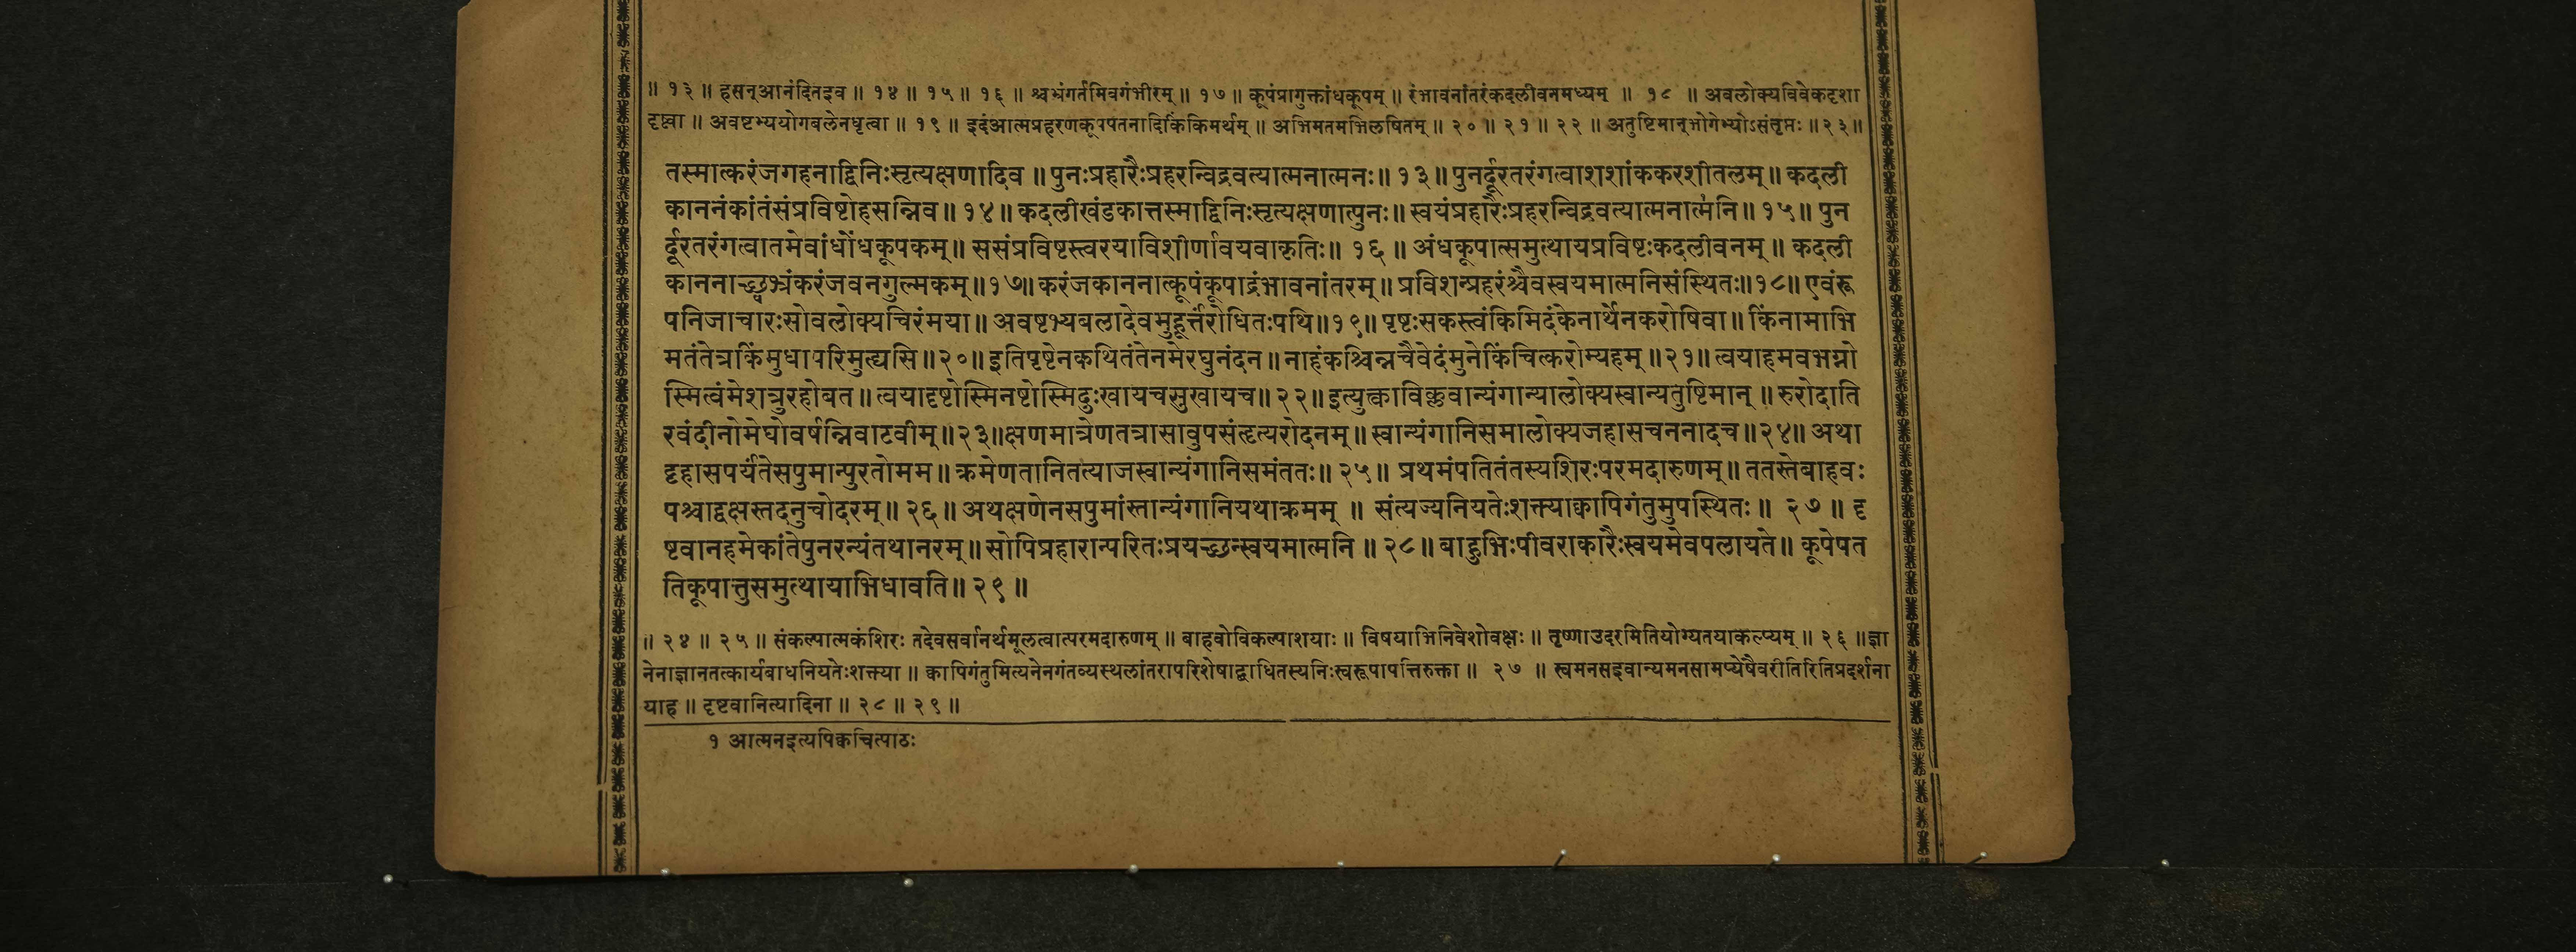 ॥ १३ ॥ हसन्आनंदितइव ॥ १४ ॥ १५ ॥ १६ ॥ श्वभ्रंगर्तमिवगंभीरम् ॥ १७ ॥ कूपंप्रागुक्तांधकूपम् ॥ रंभावनांतरंकदलीवनमध्यम् ॥ १८ ॥ अवलोक्यविवेकदृशा
दृष्ट्वा ॥ अवष्टभ्ययोगबलेनधृत्वा ॥ १९ ॥ इदंआत्मप्रहरणकूपपतनादिकिंकिमर्थम् ॥ अभिमतमभिलषितम् ॥ २० ॥ २१ ॥ २२ ॥ अतुष्टिमान्भोगेभ्योऽसंतृप्तः ॥ २३ ॥
तस्मात्करंजगहनाद्विनिःसृत्यक्षणादिव ॥ पुनःप्रहारैःप्रहरन्विद्रवत्यात्मनात्मनः ॥ १३ ॥ पुनर्दूरतरंगत्वाशशांककरशीतलम् ॥ कदली
काननंकांतंसंप्रविष्टोहसन्निव ॥ १४ ॥ कदलीखंडकात्तस्माद्विनिःसृत्यक्षणात्पुनः ॥ स्वयंप्रहारैःप्रहरन्विद्रवत्यात्मनात्म१नि ॥ १५ ॥ पुन
र्दूरतरंगत्वातमेवांधोंधकूपकम् ॥ ससंप्रविष्टस्त्वरयाविशीर्णावयवाकृतिः ॥ १६ ॥ अंधकूपात्समुत्थायप्रविष्टःकदलीवनम् ॥ कदली
काननाच्छ्वभ्रंकरंजवनगुल्मकम् ॥ १७ ॥ करंजकाननात्कूपंकूपाद्रंभावनांतरम् ॥ प्रविशन्प्रहरंश्चैवस्वयमात्मनिसंस्थितः ॥ १८ ॥ एवंरू
पनिजाचारःसोवलोक्यचिरंमया ॥ अवष्टभ्यबलादेवमुहूर्त्तंरोधितःपथि ॥ १९ ॥ पृष्टःसकस्त्वंकिमिदंकेनार्थेनकरोषिवा ॥ किंनामाभि
मतंतेत्रकिंमुधापरिमुह्यसि ॥ २० ॥ इतिपृष्टेनकथितंतेनमेरघुनंदन ॥ नाहंकश्चिन्नचैवेदंमुनेकिंचित्करोम्यहम् ॥ २१ ॥ त्वयाहमवभग्नो
स्मित्वंमेशत्रुरहोबत ॥ त्वयादृष्टोस्मिनष्टोस्मिदुःखायचसुखायच ॥ २२ ॥ इत्युक्त्वाविक्लवान्यंगान्यालोक्यस्वान्यतुष्टिमान् ॥ रुरोदाति
रवंदीनोमेघोवर्षन्निवाटवीम् ॥ २३ ॥ क्षणमात्रेणतत्रासावुपसंहृत्यरोदनम् ॥ स्वान्यंगानिसमालोक्यजहासचननादच ॥ २४ ॥ अथा
ट्टहासपर्यंतेसपुमान्पुरतोमम ॥ क्रमेणतानितत्याजस्वान्यंगानिसमंततः ॥ २५ ॥ प्रथमंपतितंतस्यशिरःपरमदारुणम् ॥ ततस्तेबाहवः
पश्चाद्वक्षस्तदनुचोदरम् ॥ २६ ॥ अथक्षणेनसपुमांस्तान्यंगानियथाक्रमम् ॥ संत्यज्यनियतेःशक्त्याक्वापिगंतुमुपस्थितः ॥ २७ ॥ दृ
ष्टवानहमेकांतेपुनरन्यंतथानरम् ॥ सोपिप्रहारान्परितःप्रयच्छन्स्वयमात्मनि ॥ २८ ॥ बाहुभिःपीवराकारैःस्वयमेवपलायते ॥ कूपेपत
तिकूपात्तुसमुत्थायाभिधावति ॥ २९ ॥
॥ २४ ॥ २५ ॥ संकल्पात्मकंशिरः तदेवसर्वानर्थमूलत्वात्परमदारुणम् ॥ बाहवोविकल्पाशयाः ॥ विषयाभिनिवेशोवक्षः ॥ तृष्णाउदरमितियोग्यतयाकल्प्यम् ॥ २६ ॥ ज्ञा
नेनाज्ञानतत्कार्यबाधनियतेःशक्त्या ॥ क्वापिगंतुमित्यनेनगंतव्यस्थलांतरापरिशेषाद्बाधितस्यनिःस्वरूपापत्तिरुक्ता ॥ २७ ॥ स्वमनसइवान्यमनसामप्येषैवरीतिरितिप्रदर्शना
याह ॥ दृष्टवानित्यादिना ॥ २८ ॥ २९ ॥
१ आत्मनइत्यपिक्वचित्पाठः